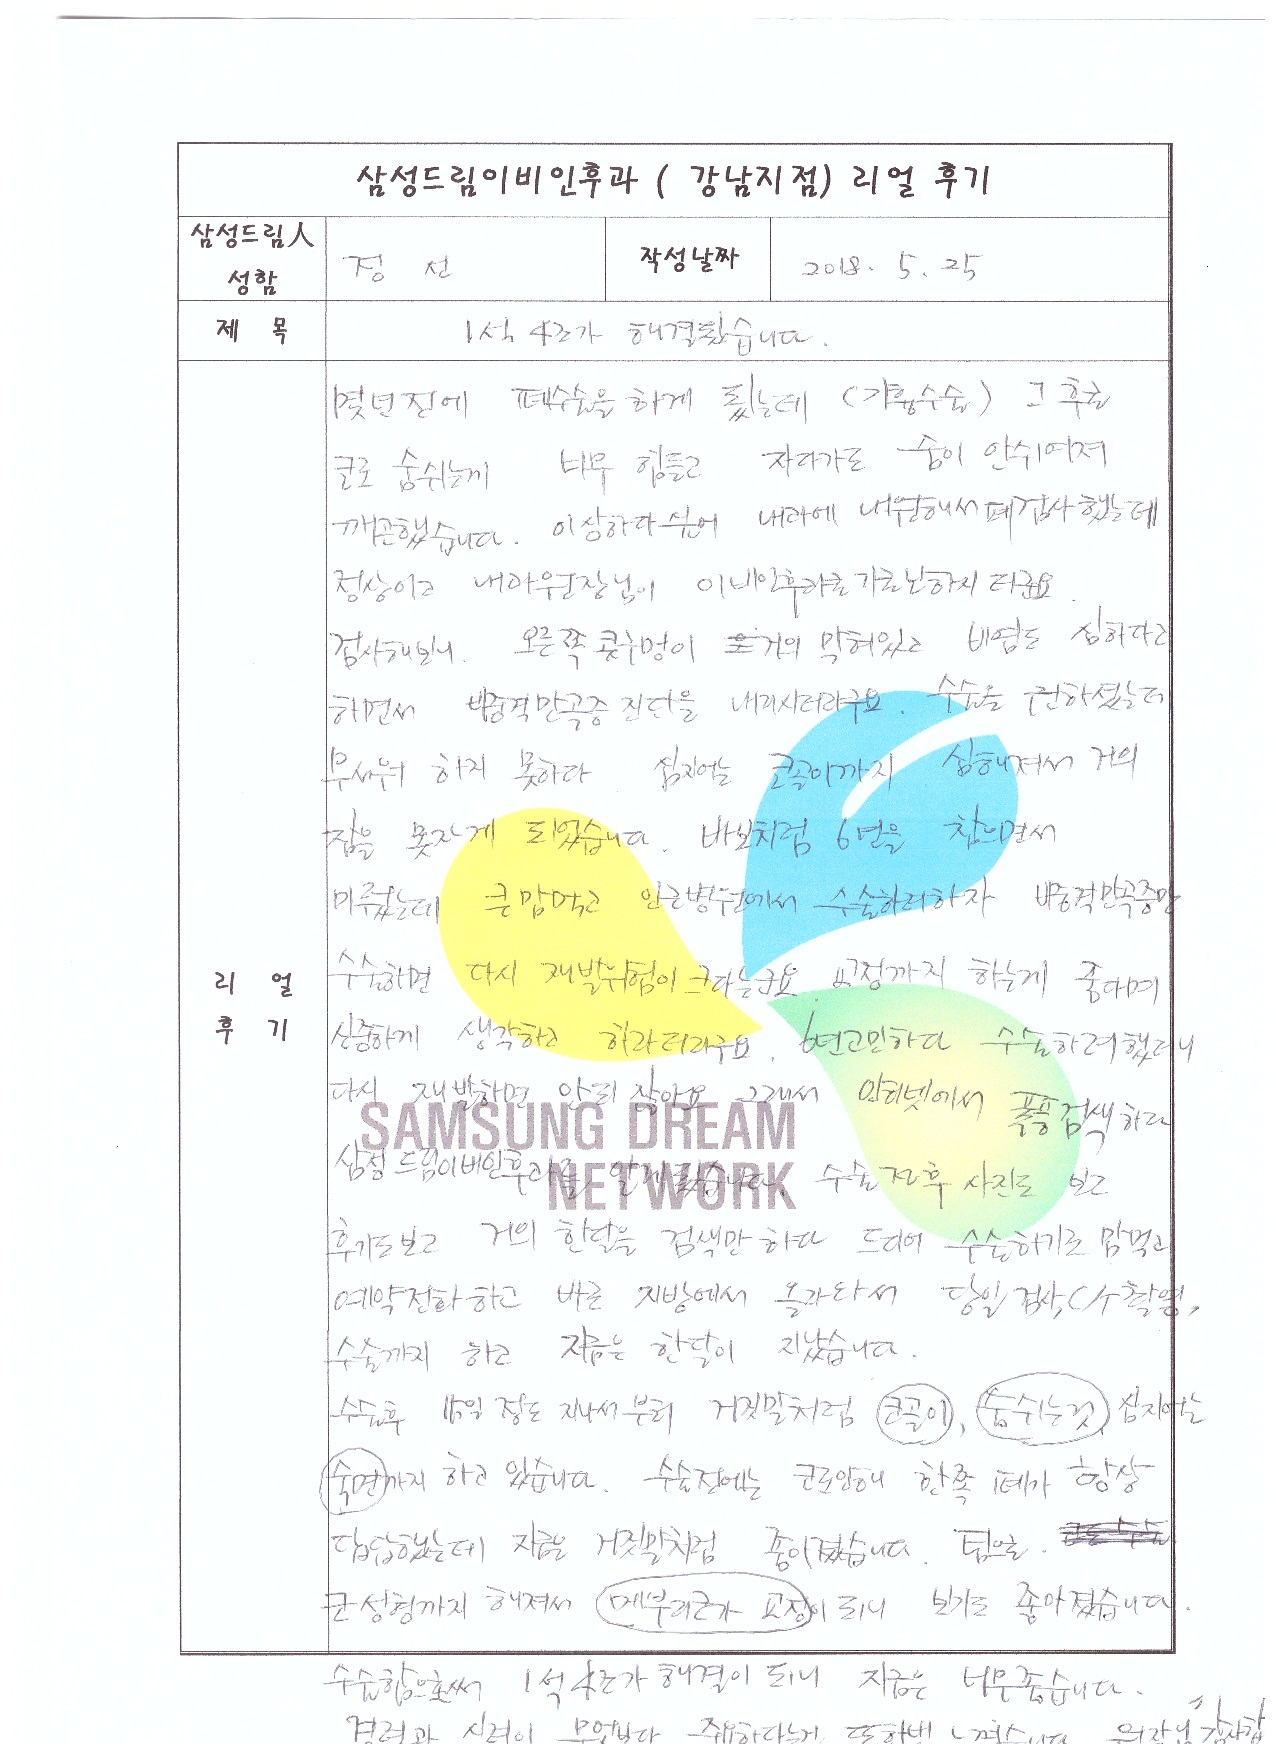 삼성드림이비인후과 ( 강남지점) 리얼 후기
삼성드림人 성함
정 선
작성날짜
2018. 5. 25
제 목
1석 4조가 해결됐습니다.
리 얼 후 기
몇년전에 폐수술을 하게 됬는데 (기흉수술) 그 후로
코로 숨쉬는게 너무 힘들고 자다가도 숨이 안쉬여져
깨곤했습니다. 이상하다싶어 내과에 내원해서 폐검사했는데
정상이고 내과원장님이 이비인후과로 가보라하시더라구요.
검사해보니 오른쪽 콧구멍이 거의 막혀있고 비염도 심하다고
하면서 비중격만곡증 진단을 내리시더라구요. 수술을 권하셨는데
무서워 하지 못하다 심지어는 코골이까지 심해져서 거의
잠을 못자게 되었습니다. 바보처럼 6년을 참으면서
미뤘는데 큰맘먹고 인근병원에서 수술하려하자 비중격만곡증만
수술하면 다시 재발위험이 크다는군요. 교정까지 하는게 좋다며
신중하게 생각하고 하라더라구요. 6년고민하다 수술하려했더니
다시 재발하면 안되잖아요 그래서 인터넷에서 폭풍검색하다
삼성드림이비인후과를 알게됬습니다. 수술전후 사진도 보고
후기도보고 거의 한달을 검색만 하다 드디어 수술하기로 맘먹고
예약전화하고 바로 지방에서 올라와서 당일 검사, C/T촬영,
수술까지 하고 지금은 한달이 지났습니다.
수술후 15일 정도 지나서부터 거짓말처럼 코골이, 숨쉬는것, 심지어는
숙면까지 하고 있습니다. 수술전에는 코로인해 한쪽 폐가 항상
답답했는데 지금은 거짓말처럼 좋아졌습니다. 덤으로.
코성형까지 해져서 메부리코가 교정이 되니 보기도 좋아졌습니다.
수술함으로써 1석 4조가 해결이 되니 지금은 너무좋습니다.
경력과 실력이 무엇보다 중요하다는걸 또한번 느꼈습니다. 원장님 감사합
SAMSUNG DREAM
NETWORK